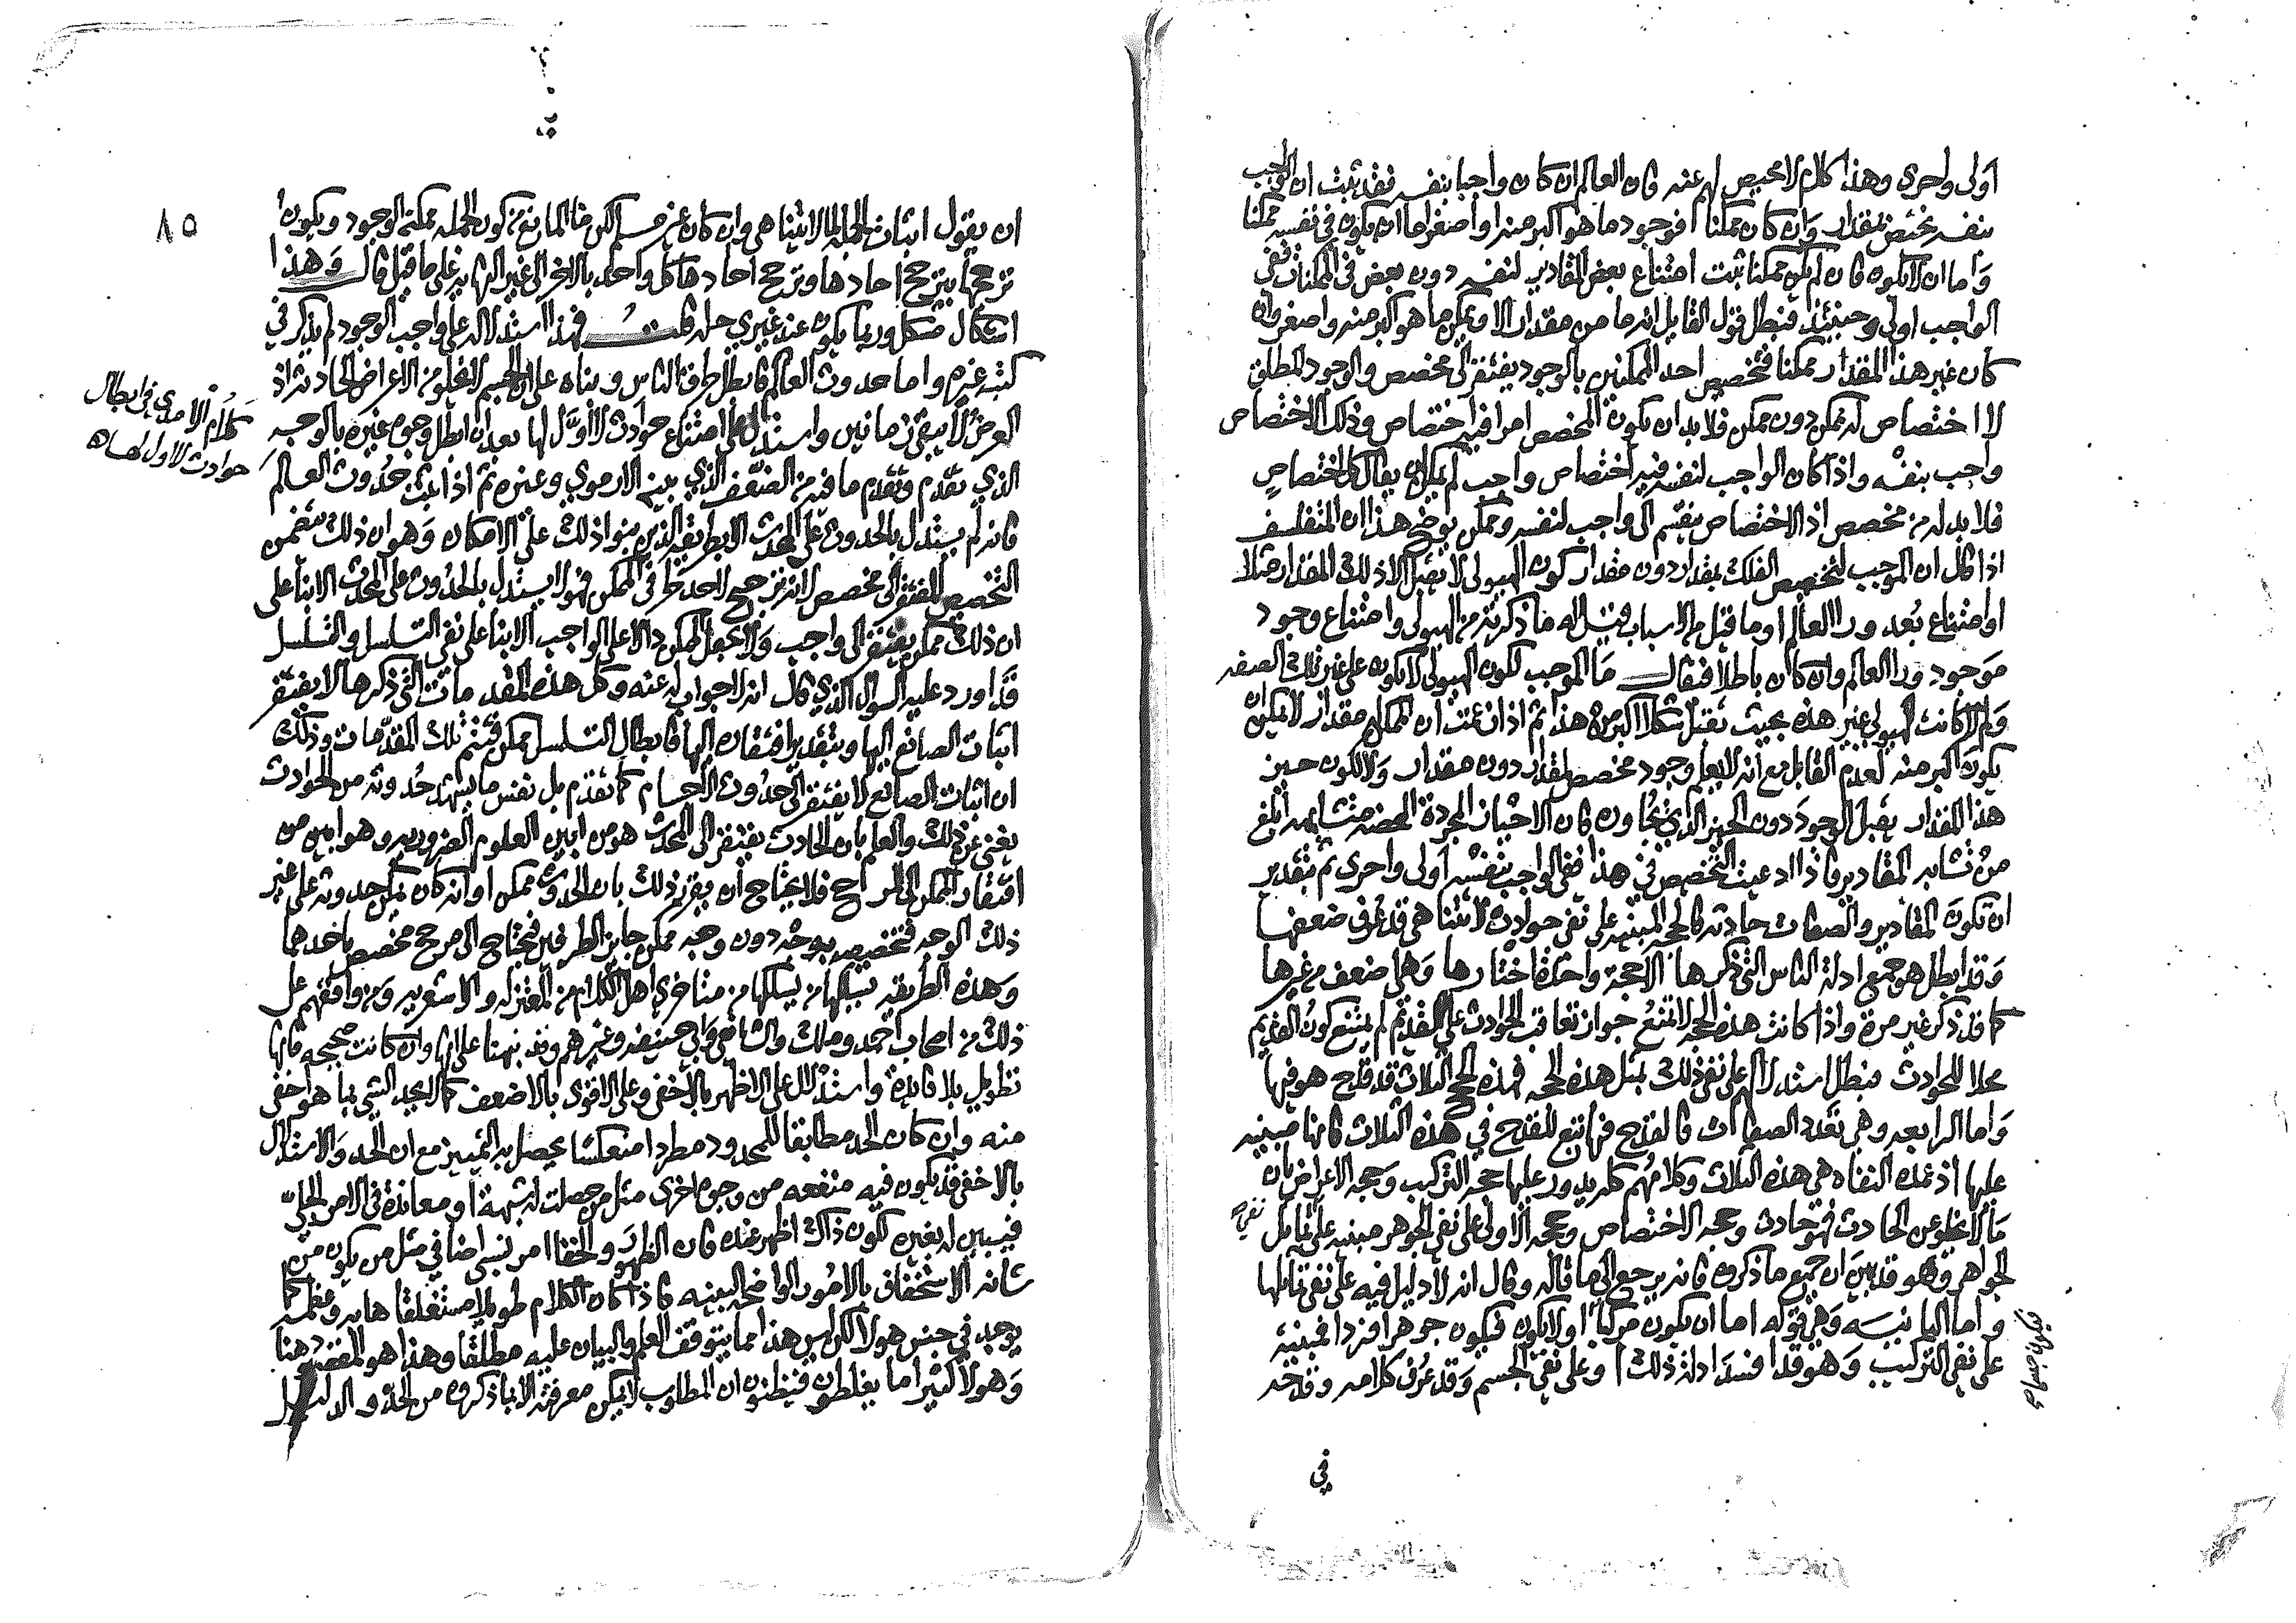 اولى واحرى وهذا كلام لا محيص لهم عنه فان العالم ان كان واجبا بنفسه فقد ثبت ان الواجب
بنفسه يختص بمقدار وان كان ممكنا فوجود ما هو اكبر منه او اصغر اما ان يكون في نفسه ممكنا
واما ان لا يكون فان لم يكن ممكنا ثبت امتناع بعض المقادير لنفسه دون بعض في الممكنات ففي
الواجب اولى وحينئذ فبطل قول القايل انه ما من مقدار الا ويمكن ما هو اكبر منه واصغر وان
كان غير هذا المقدار ممكنا فتخصيص احد الممكنين بالوجود يفتقر الى مخصص والوجود المطلق
لا اختصاص له بممكن دون ممكن فلا بد ان يكون المخصص امرا فيه اختصاص وذلك الاختصاص
واجب بنفسه واذا كان الواجب لنفسه فيه اختصاص واجب لم يمكن ان يقال كل اختصاص
فلا بد له من مخصص اذ الاختصاص ينقسم الى واجب لنفسه وممكن يوضح هذا ان المتفلسف
اذا قال ان الموجب لتخصيص الفلك بمقدار دون مقدار كون الهيولى لا تقبل الا ذلك المقدار مثلا
او امتناع بعد ورا العالم او ما قيل من الاسباب قيل له ما ذكرته من الهيولى وامتناع وجود
موجود ورا العالم وان كان باطلا فيقال ما الموجب لكون الهيولى لا يكون على غير تلك الصفه
ولم لا كانت الهيولى غير هذه بحيث تقبل شكلا اكبر من هذا ثم اذا زعمت ان الممكن له مقدار لا يمكن ان
يكون اكبر منه لعدم القابل مع انه لا يعلم وجود مخصص لقدار دون مقدار ولا لكون حيز
هذا المقدار يقبل الوجود دون الحيز الذي يجاوره فان الاحياز المجردة المحضه متشابهه ابلغ
من تشابه المقادير فاذا ادعيت التخصيص في هذا ففي الواجب بنفسه اولى واحرى ثم بتقدير
ان تكون المقادير والصفات حادثه فالحجه المبنيه على نفي حوادث لا تتناهى قد عرف ضعفها
وقد ابطل هو جميع ادلة الناس التي ذكرها الا حجة واحدة اختارها وهي اضعف من غيرها
كما قد ذكر غير مرة واذا كانت هذه الحجه لا تمنع جواز تعاقب الحوادث على القديم لم يمتنع كون القديم
محلا للحوادث فبطل استدلالهم على نفي ذلك بمثل هذه الحجه فهذه الحجج الثلاث قد قدح هو فيها
واما الرابعه وهي تعدد الصفات فالقدح فيها تبع للقدح في هذه الثلاث فانها مبنيه
عليها اذ عمدة النفاه هي هذه الثلاث وكلامهم كله يدور عليها حجه التركيب وحجه الاعراض بان
ما لا يخلو عن الحادث فهو حادث وحجه الاختصاص وحجه الاولى على نفي الجوهر مبنيه على تماثل
الجواهر وهو قد بين ان جميع ما ذكروه فانه يرجع الى ما قاله وقال انه لا دليل فيه على نفي تماثلها
واما الثانيه وهي قوله اما ان يكون مركبا او لا يكون فيكون جوهرا فردا فمبنيه
على نفي التركيب وهو قد افسد ادلة ذلك وعلى نفي الجسم وقد عرف كلامه وقدحه
في
٨٥
ان يقول اثبات الجمله لما لا يتناهى وان كان غير مسلم لكن ما المانع من كون الجمله ممكنة الوجود ويكون
ترجحها بترجح احادها وترجح احادها كل واحد بالاخر الى غير النهايه على ما قيل قال وهذا
اشكال مشكل وربما يكون عند غيري حله قلت فهذا استدلاله على واجب الوجود لم يذكر في
كتبه غيره واما حدوث العالم فابطل طرق الناس وبناه على ان الجسم لا يخلو من الاعراض الحادثه اذ
العرض لا يبقى زمانين واستدل على امتناع حوادث لا اول لها بعد ان ابطل وجوه غيره بالوجه
الذي تقدم وتقدم ما فيه من الضعف الذي بينه الارموي وغيره ثم اذا ثبت حدوث العالم
فانه لم يستدل بالحدوث على المحدث الا بطريقه الذين بنوا ذلك على الامكان وهو ان ذلك يتضمن
التخصيص المفتقر الى مخصص لانه ترجيح لاحد طرفي الممكن فهو لا يستدل بالحدوث على المحدث الا بناء على
ان ذلك ممكن يفتقر الى واجب ولا يجعل الممكن دالا على الواجب الا بناء على نفي التسلسل والتسلسل
قد اورد عليه السوال الذي قال انه لا جواب له عنه وكل هذه المقدمات التي ذكرها لا يفتقر
اثبات الصانع اليها وبتقدير افتقاره اليها فابطال التسلسل ممكن فتتم تلك المقدمات وذلك
ان اثبات الصانع لا يفتقر الى حدوث الاجسام كما تقدم بل نفس ما يشهد حدوثه من الحوادث
يغني عن ذلك والعلم بان الحادث يفتقر الى المحدث هو من ابين العلوم الضروريه وهو ابين من
افتقار الممكن الى المرجح فلا يحتاج ان يقرر ذلك بان الحدوث ممكن او انه كان يمكن حدوثه على غير
ذلك الوجه فتخصيصه بوجه دون وجه ممكن جايز الطرفين فيحتاج الى مرجح مخصص باحدهما
وهذه الطريقه يسلكها من يسلكها من متاخري اهل الكلام من المعتزله والاشعريه ومن وافقهم على
ذلك من اصحاب احمد ومالك والشافعي وابي حنيفه وغيرهم وقد نبهنا على انها وان كانت صحيحه فانها
تطويل بلا فايدة واستدلال على الاظهر بالاخفى وعلى الاقوى بالاضعف كما لا يحد الشي بما هو اخفى
منه وان كان الحد مطابقا للمحدود مطردا منعكسا يحصل به التمييز مع ان الحد والاستدلال
بالاخفى قد يكون فيه منفعه من وجوه اخرى مثل من حصلت له شبهة او معاندة في الامر الجلي
فيبين له بغيره لكون ذاك اظهر عنده فان الظهور والخفا امر نسبي اضافي مثل من يكون من
شانه الاستخفاف بالامور الواضحه البينه فاذا كان الكلام طويلا مستغلقا هابه وعظمه كما
يوجد في جنس هولا لكن ليس هذا مما يتوقف العلم والبيان عليه مطلقا وهذا هو المقصود هنا
وهولا كثيرا ما يغلطون فيظنون ان المطلوب لا يمكن معرفته الا بما ذكروه من الحد والدليل
كلام الامدي في ابطال
حوادث لا اول لها